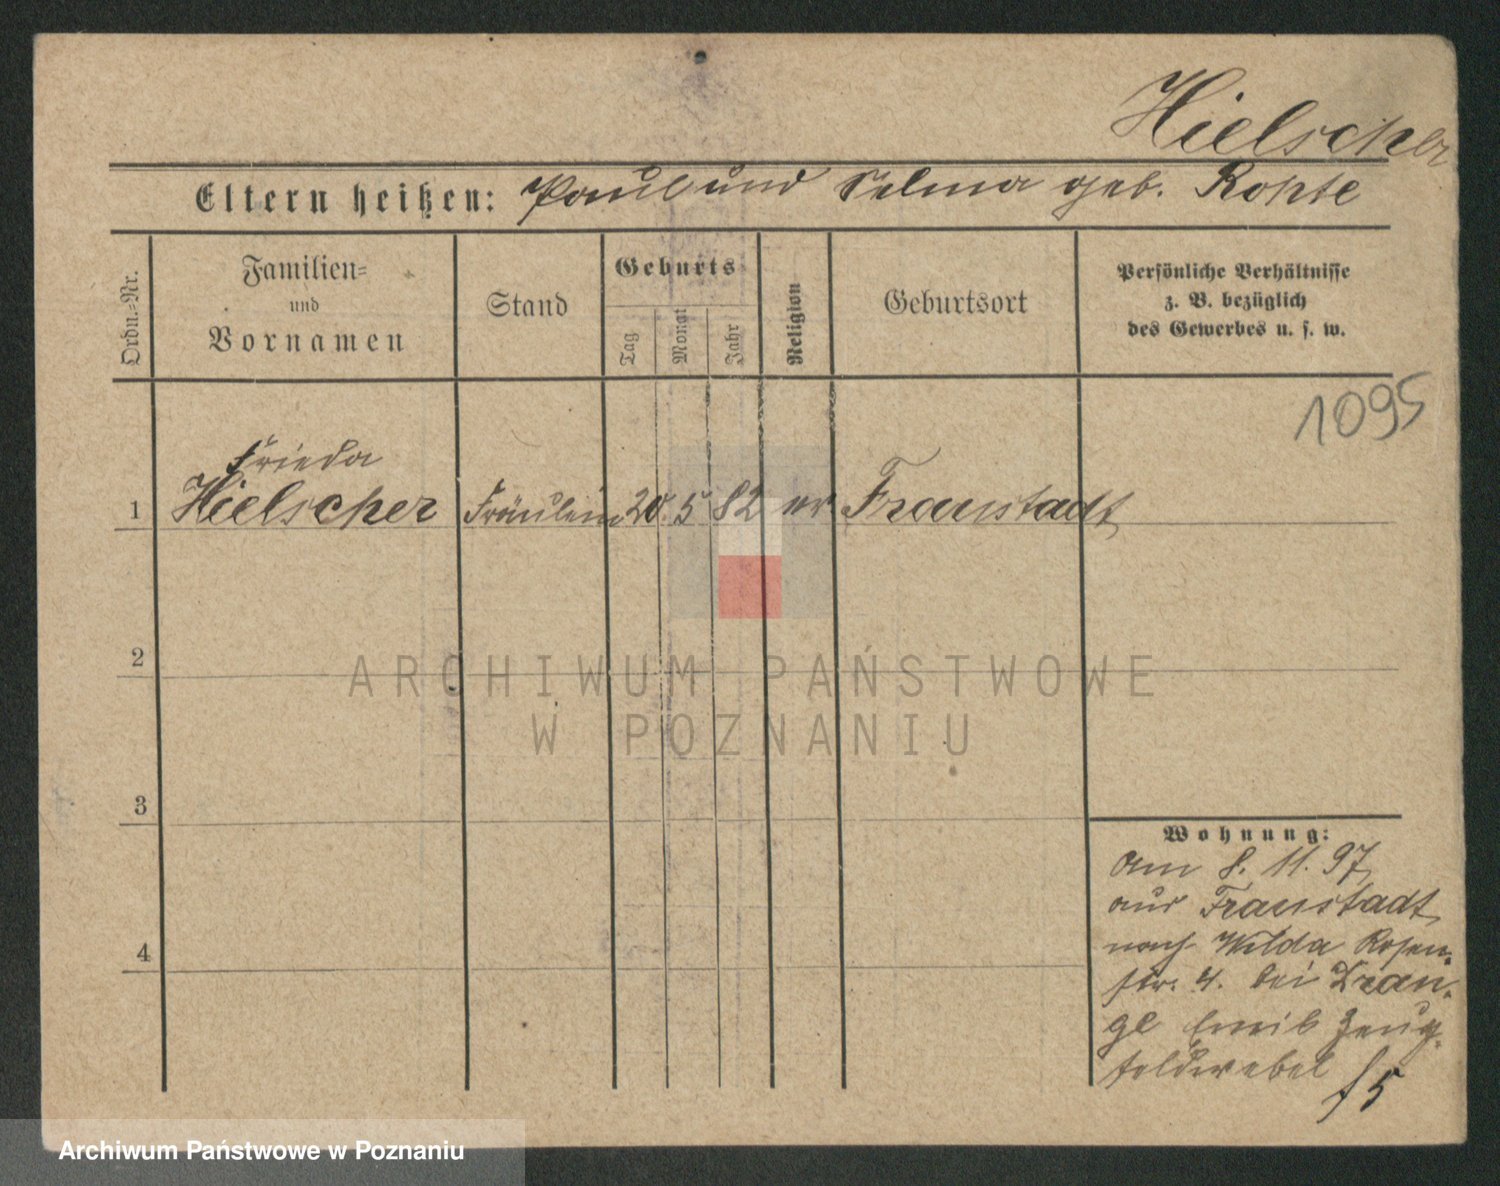 Hielscher
Eltern heißen: Paul und Selma geb. Rohte
Ordn.-Nr.
Familien-
und
Vornamen
Stand
Geburts
Tag
Monat
Jahr
Religion
Geburtsort
Persönliche Verhältnisse
z. B. bezüglich
des Gewerbes u. s. w.
1095
Frieda
1 Hielscher Fräulein 20. 5 82 ev Fraustadt
2
3
4
Wohnung:
am 8. 11. 97
aus Fraustadt
nach Wilda Rosen-
str. 4. bei
Emil Zeug-
feldwebel
f 5
ARCHIWUM PAŃSTWOWE
W POZNANIU
Archiwum Państwowe w Poznaniu